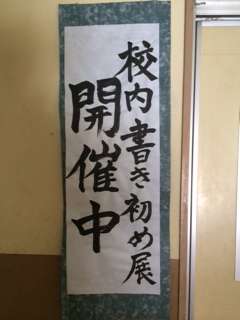 校内書き初め展
開催中